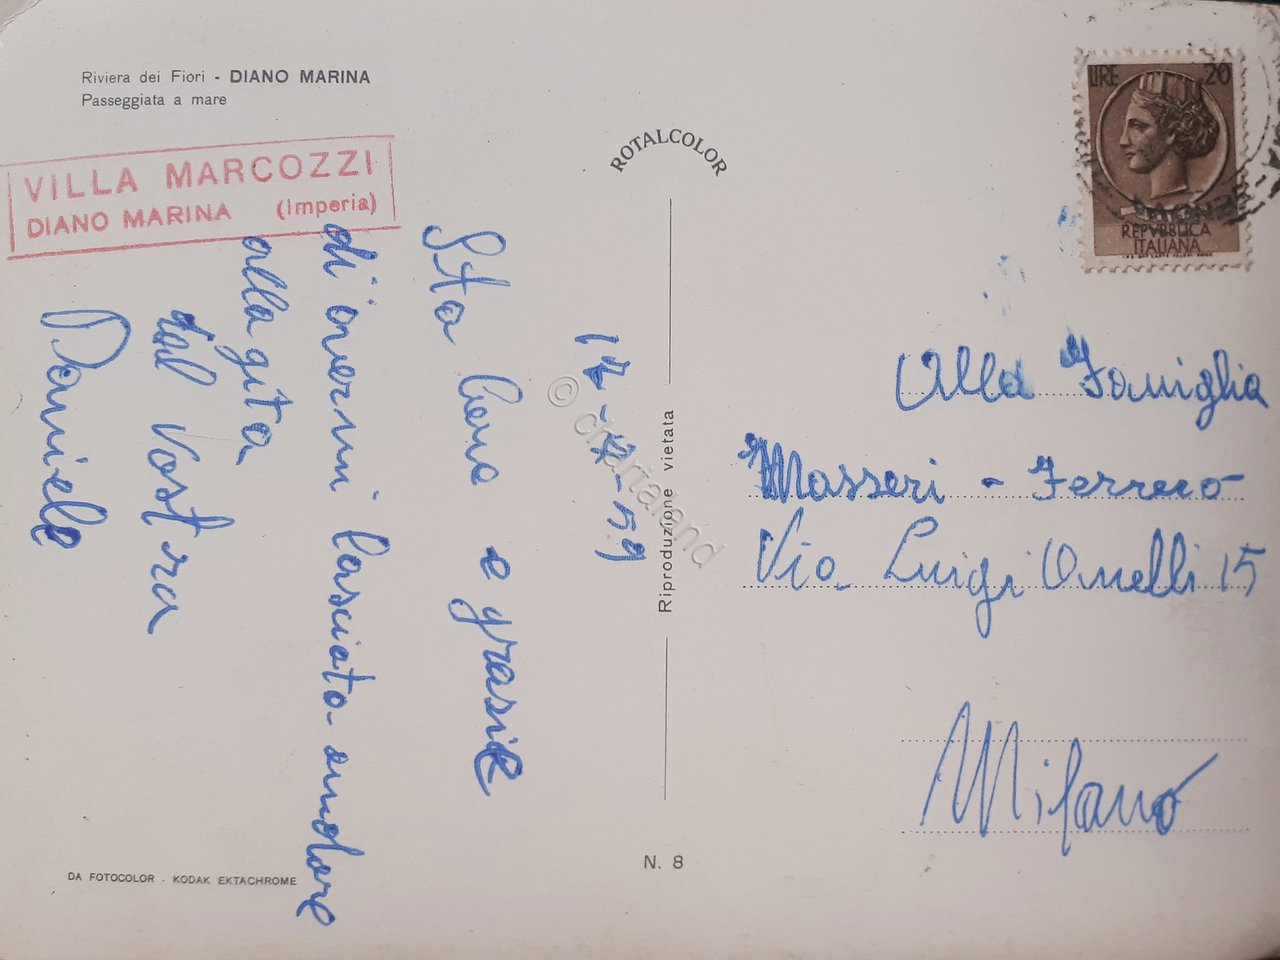 Riviera dei Fiori - DIANO MARINA
Passeggiata a mare
VILLA MARCOZZI
DIANO MARINA (Imperia)
Sto bene e grasie
di avermi lasciato andare
alla gita
dal Vostra
Daniele
DA FOTOCOLOR - KODAK EKTACHROME
ROTALCOLOR
Riproduzione vietata
N. 8
© chartaland
LIRE 20
REPVBBLICA
ITALIANA
Alla Famiglia
Masseri - Ferrero
Via Luigi Anelli 15
Milano